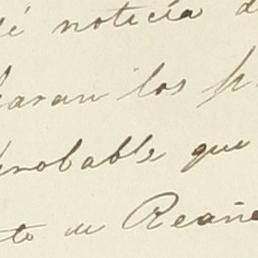 dé noticia d
karan los p
probable que
to de Reañe